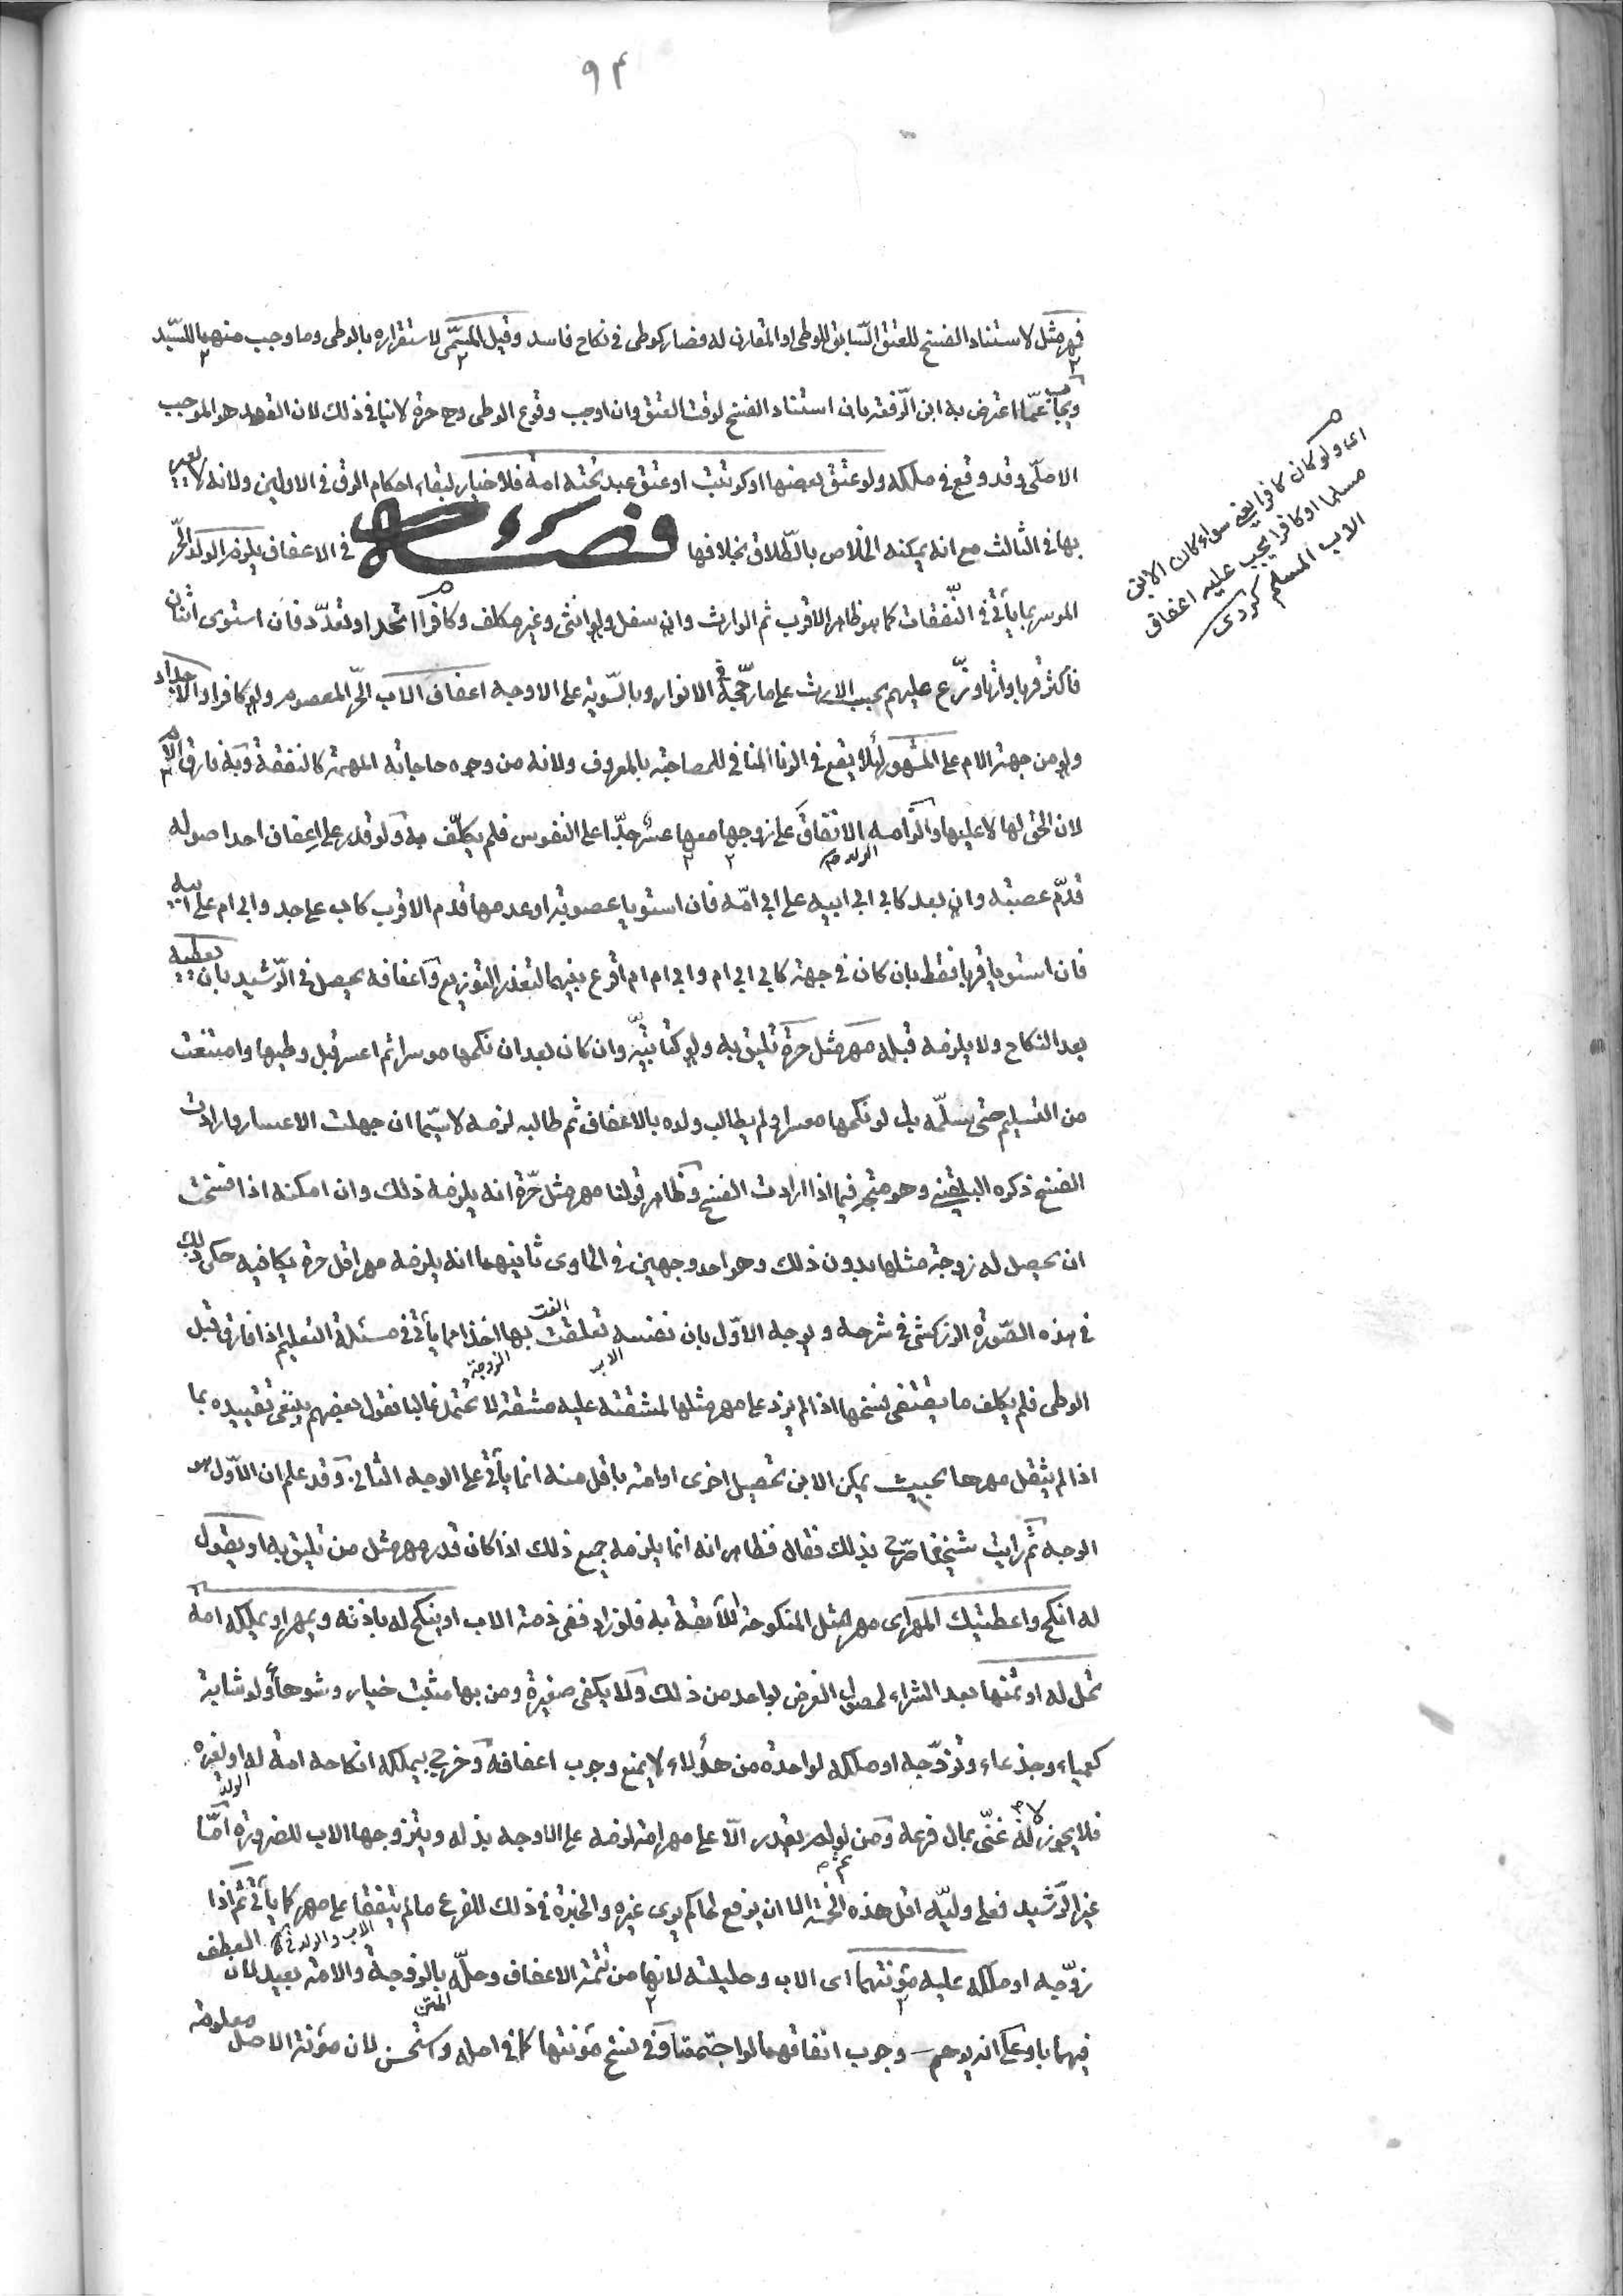 ٩٣
فمهر مثل لاستناد الفسخ للعتق السّابق للوطى او المقارن له فصار كوطى فى نكاح فاسد وقيل المسمّى لاستقراره بالوطى وما وجب منهما للسّيد
ويجاب عمّا اعترض به ابن الرّفعة بان استناد الفسخ لوقت العتق وان اوجب وقوع الوطى وهى حرة لا ينافى ذلك لان العقد هو الموجب
الاصلى وقد وقع فى ملكه ولو عتق بعضها او كوتبت او عتق عبد تحته امة فلا خيار لبقاء احكام الرق فى الاولين ولانه لا يعير
بها فى الثالث مع انه يمكنه الخلاص بالطّلاق بخلافها فصل فى الاعفاف يلزم الولد الحر
الموسر بما يأتى فى النّفقات كما هو ظاهر الاقرب ثم الوارث وان سفل ولو انثى وغير مكلف وكافرا اتحد او تعدّد فان استوى اثنان
فاكثر قربا وارثا وزّع عليهم بحسب الارث على ما رجّحه فى الانوار وبالسّوية على الاوجه اعفاف الاب الحّر المعصوم ولو كافرا والاجداد
ولو من جهة الام على المشهور لئلا يقع فى الزنا المنافى للمصاحبة بالمعروف ولانه من وجوه حاجاته المهمة كالنفقة وبه فارق الام
لان الحق لها لا عليها والزامه الانفاق على زوجها معها عسر جدّا على النفوس فلم يكلّف به ولو قدر على اعفاف احد اصوله
الولد
قدّم عصبته وان بعد كابى ابى ابيه على ابى امّه فان استويا عصوبة او عدمها قدم الاقرب كاب على جد وابى ام على ابيه
فان استويا قربا فقط بان كان فى جهة كابى ابى ام وابى ام ام اقرع بينهما لتعذر التوزيع واعفافه يحصل فى الرّشيد بان يعطيه
بعد النكاح ولا يلزمه قبله مهر مثل حرة تليق به ولو كتابيّة وان كان بعد ان نكحها موسرا ثم اعسر قبل وطيها وامتنعت
من التسليم حتى يسلّمه بل لو نكحها معسرا ولم يطالب ولده بالاعفاف ثم طالبه لزمه لا سيّما ان جهلت الاعسار وارادت
الفسخ ذكره البلقينى وهو متجه فيما اذا ارادت الفسخ وظاهر قولنا مهر مثل حرّة انه يلزمه ذلك وان امكنه اذا فسخت
ان يحصل له زوجة مثلها بدون ذلك وهو احد وجهين فى الحاوى ثانيهما انه يلزمه مهر اقل حرة تكافيه حكى ذلك
فى هذه الصّورة الزركشى فى شرحه ويوجه الاوّل بان نفسه تعلقت بها اخذا مما يأتى فى مسئلة التعليم اذا فارق قبل
الوطى فلم يكلف ما يقتضى فسخها اذا لم يزد على مهر مثلها لمشقته عليه مشقة لا تحتمل غالبا فقول بعضهم ينبغى تقييده بما
الاب الزوجة
اذا لم يثقل مهرها بحيث يمكن الابن تحصيل اخرى او امة باقل منه انما يأتى على الوجه الثانى وقد علم ان الاّول هو
الوجه ثم رايت شيخنا صرّح بذلك فقال فظاهر انه انما يلزمه جميع ذلك اذا كان قدر مهر مثل من تليق به او يقول
له انكح واعطيتك المهر اى مهر مثل المنكوحة اللائقة به فلو زاد ففى ذمة الاب او ينكح له باذنه ويمهر او يملكه امة
تحل له او ثمنها بعد الشراء لحصول الغرض بواحد من ذلك ولا يكفى صغيرة ومن بها مثبت خيار وشوهاء ولو شابة
كعمياء وجذعاء وتزوّجه او ملكه لواحدة من هؤلاء لا يمنع وجوب اعفافه وخرج بيملكه انكاحه امة له او لغيره
فلا يجوز لانه غنىّ بمال فرعه ومن لو لم يقدر الّا على مهر امة لزمه على الاوجه بذله ويتزوجها الاب للضرورة امّا
الولد
غير الرّشيد فعلى وليّه اقل هذه الخمسة الا ان يرفع لحاكم يرى غيره والخيرة فى ذلك للفرع ما لم يتفقا على مهر كما يأتى ثم اذا
زوّجه او ملكه عليه مؤنتهما اى الاب وحليلته لانها من تتمة الاعفاف وحلّه بالزوجة والامة بعيد لان العطف
الاب والولد
فيهما باو على انه يوهم وجوب انفاقهما لو اجتمعتا وفى نسخ مؤنتها كما فى اصله واستحسن لان مؤنة الاصل معلومة
المتن
اى ولو كان كافرا يعنى سواء كان الابن
مسلما او كافرا يجب عليه اعفاف
الاب المسلم كردى